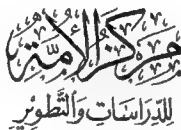 مركز الأمة
للدراسات والتطوير